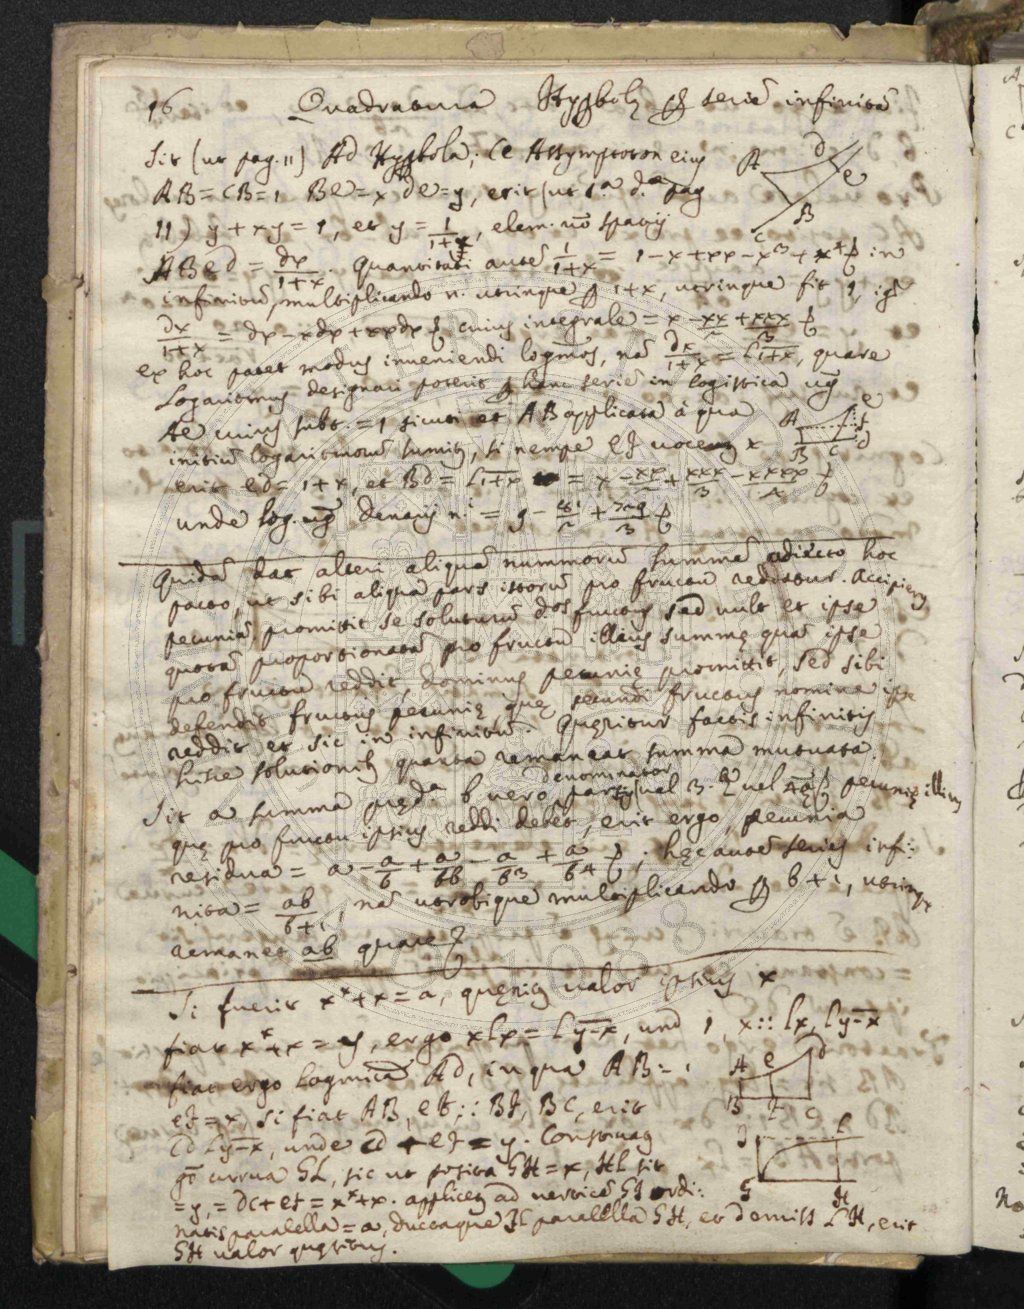 16 Quadratura Hyperbolę per seriē infinitā
A d e B C
Sit (ut pag. 11) Ad Hyperbola, Ce Assymptoton eius
AB = CB = 1 Be = x de = y, erit (ut 1a d.a pag
11) y + xy = 1, et y = 1/1+x, elem. spatij
ABed = dx/1+x. Quantitati autē 1/1+x = 1 - x + xx - x3 + x4 & in
infinitū, multiplicando n. utrinque per 1+x, utrinque fit 1, igr
dx/1+x = dx - xdx + xxdx & cuius integrale = x - xx/2 + xxx/3 &
ex hoc patet modus inveniendi logmos, nā dx/1+x = l1+x, quare
Logaritmus designari poterit per hanc seriē in logistica
Ae cuius subt. = 1 sicuti et AB applicata à qua
A e f B C d
initiū logaritmorū sumitur, si nempe ef vocetur x
erit ed = 1+x, et Bd = l1+x = x - xx/2 + xxx/3 - xxxx/4 &
unde log. denarij ni = 9 - 81/2 + 729/3 &
Quidā dat alteri aliquā nummorū summā adiecto hoc
pacto, ut sibi aliqua pars istorū pro fructu reddatur. Accipiens
pecuniā promittit se soluturū dos fructus sed vult et ipse
quotā proportionatā pro fructu illius summę quā ipse
pro fructu reddit, dominus pecunię promittit, sed sibi
defendit fructus pecunię quę secundi fructus nomine ipse
reddit et sic in infinitū. Quęritur factis infinitis
huiusce solutionibus quanta remaneat summa mutuata.
Sit a summa pręd.a b vero denominator partis (vel 3. vel 4ę) & pecunię illius
quę pro fructu ipsius reddi debet, erit ergo pecunia
residua = a - a/b + a/bb - a/b3 + a/b4 &; hęc autē series infi:
nita = ab/b+1, nā utrobique multiplicando per b+1, utrinque
remanet ab quare &
Si fuerit xx+x = a, quęritur valor ipsius x
fiat xx+x = y, ergo xlx = ly-x, und 1, x :: lx, ly-x
fiat ergo Logmica Ad, in qua AB = 1
A e d B f C
ef = x, si fiat AB, ef :: Bf, BC, erit
Cd y-x, unde Cd + ef = y. Construatur
I L G H
gr curva GL, sic ut posita GH = x, HL sit
= y, = DC + ef = xx+x. applicetur ad verticē GI ordi:
natis paralella = a, ducaque IL paralella GH, et demissa LH, erit
GH valor quęsitus.